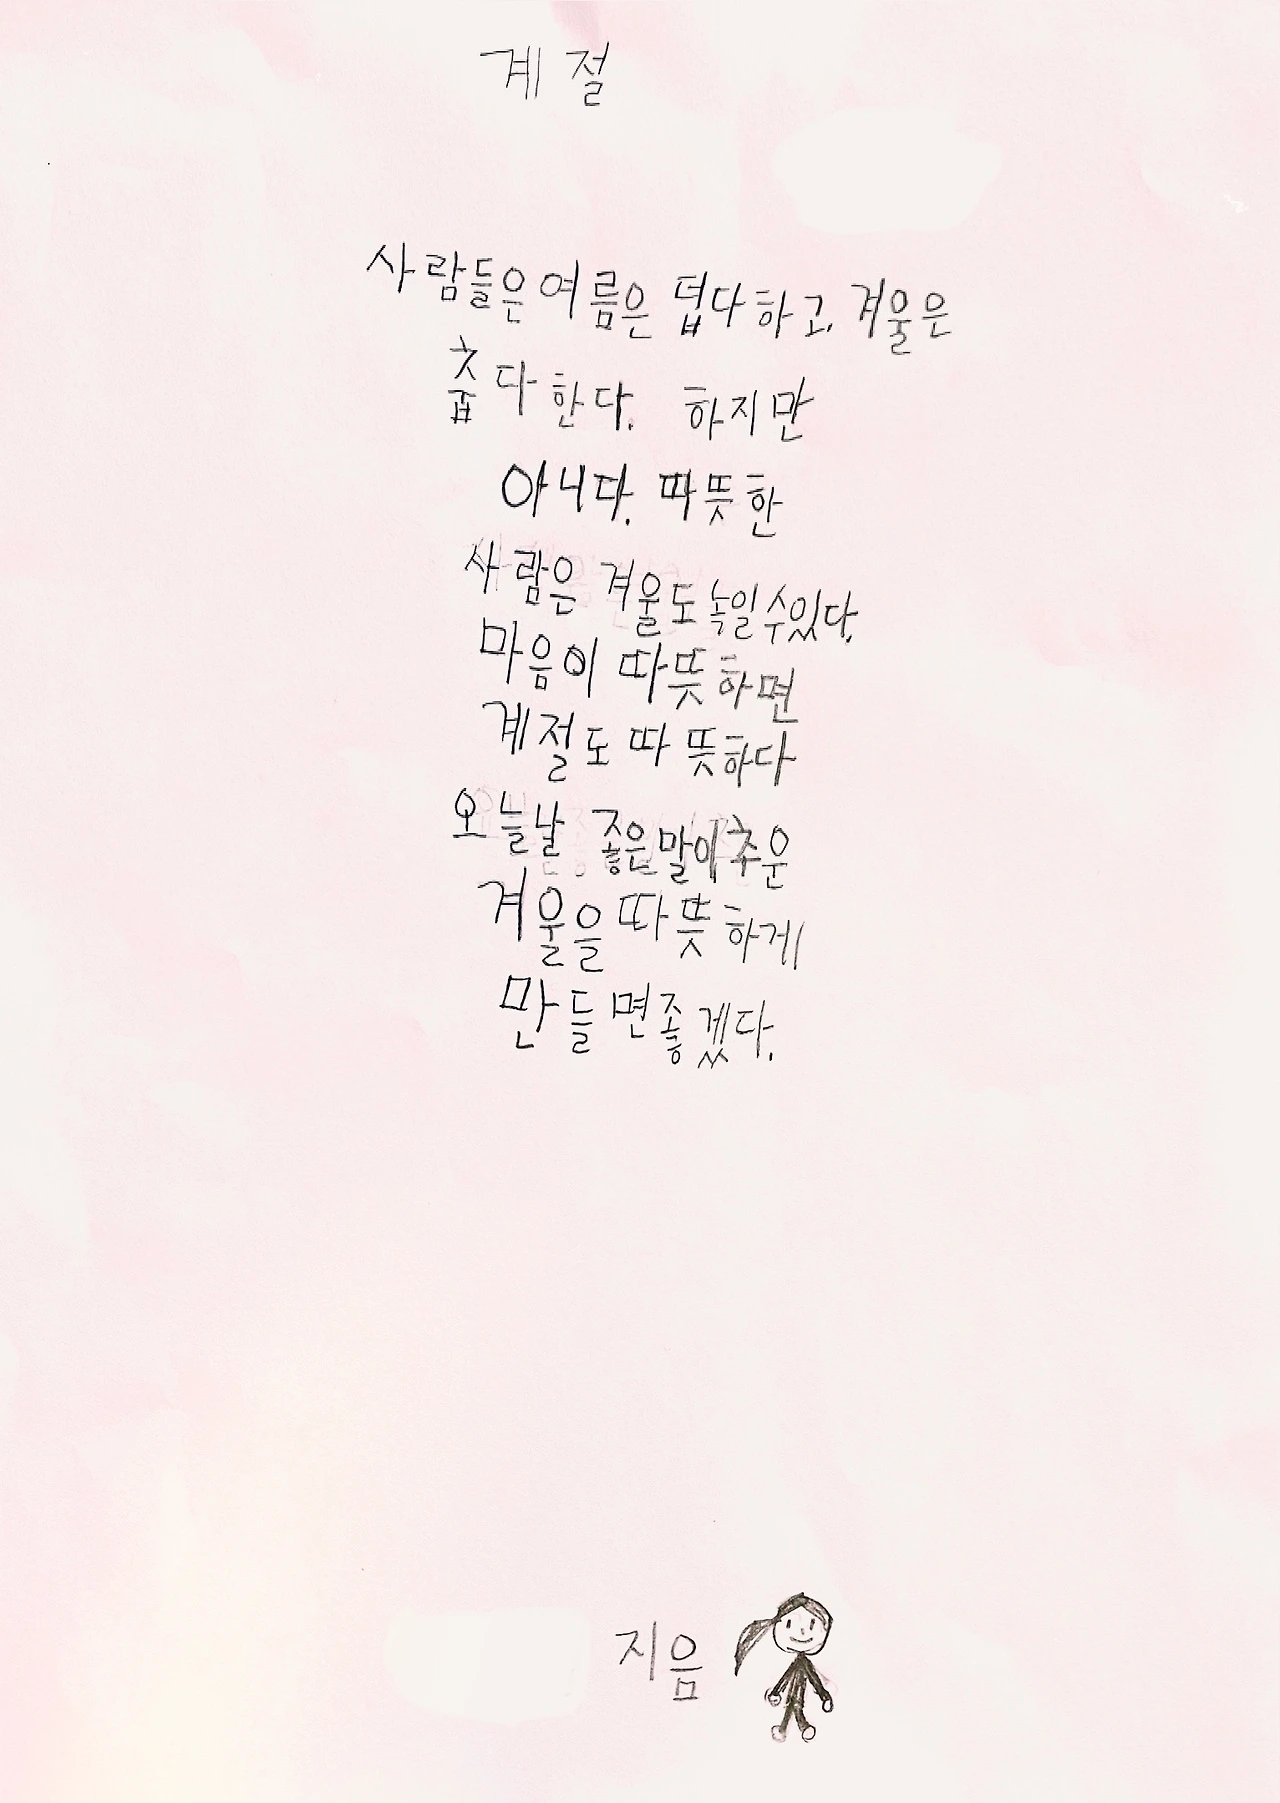 계절
사람들은 여름은 덥다하고, 겨울은
춥다 한다. 하지만
아니다. 따뜻한
사람은 겨울도 녹일 수 있다.
마음이 따뜻하면
계절도 따뜻하다
오늘날 좋은 말이 추운
겨울을 따뜻하게
만들면 좋겠다.
지음